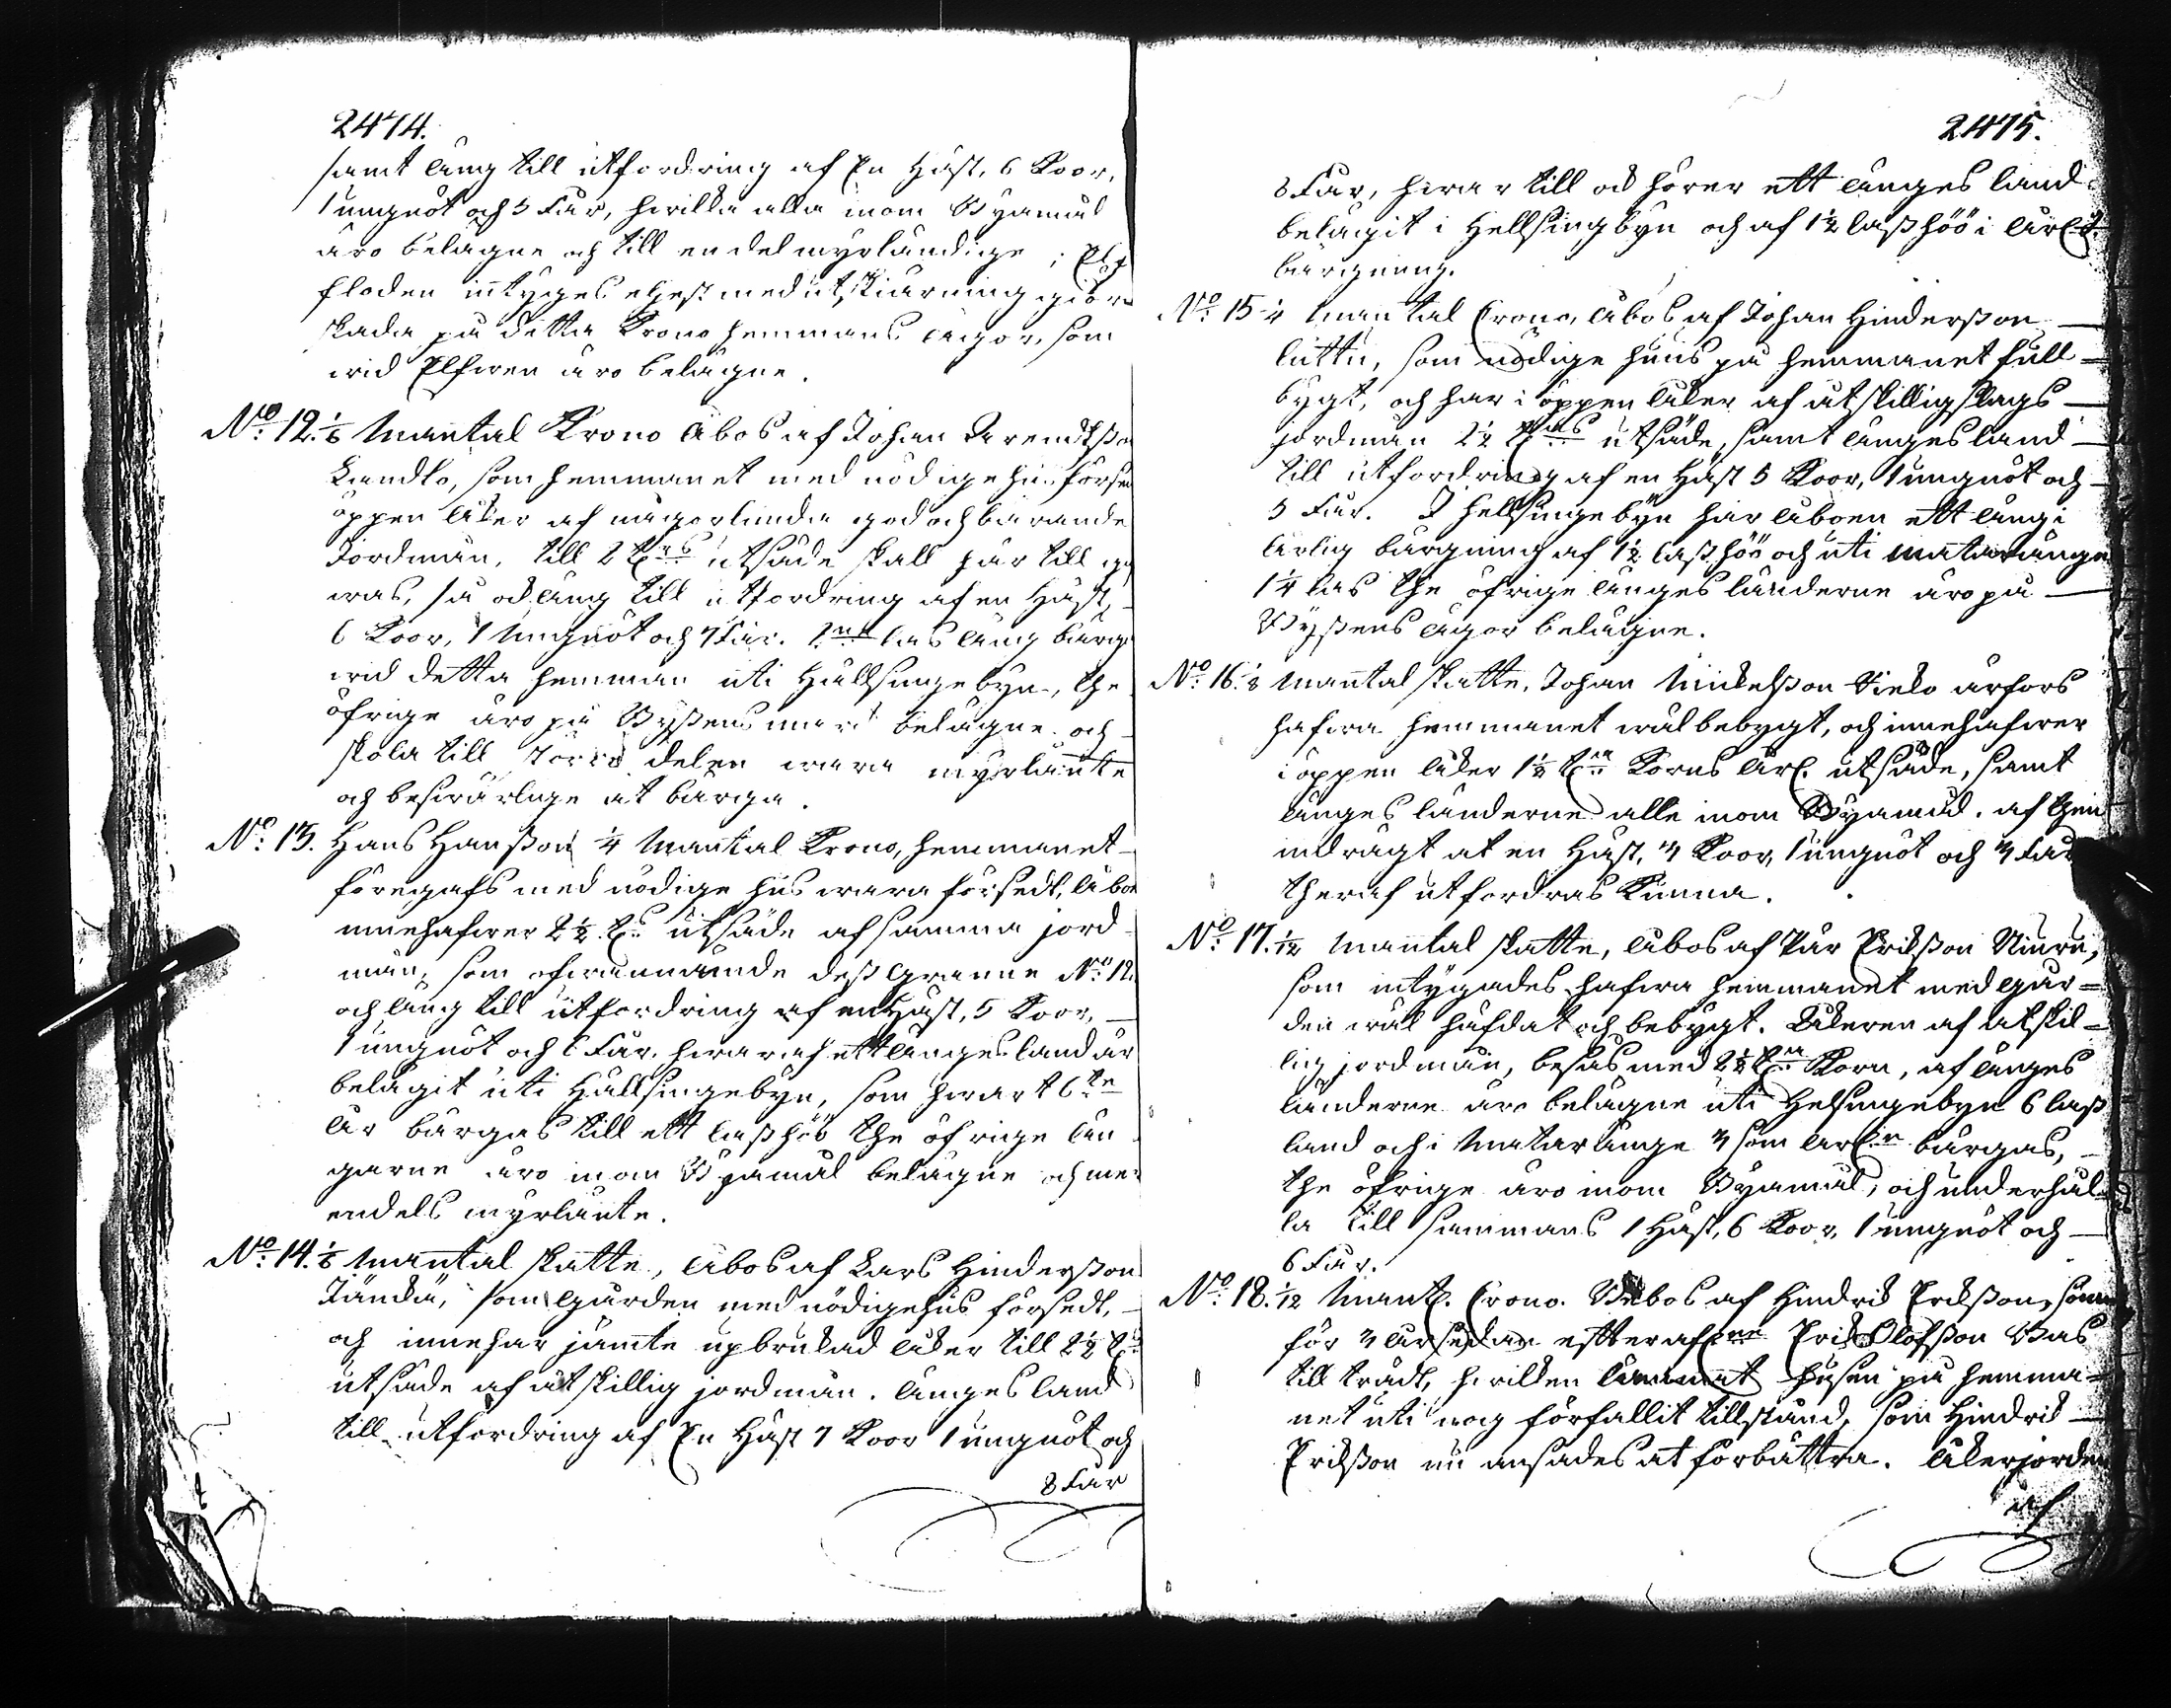 2474.
samt äng till utfordring af En Häst, 6 Koor,
1 ungnöt och 5 Får, hwilka alla inom Byamål
äro belägne och till en del myrländige; Elf
floden intyges ehest med utskiärning giöra
skada på detta Krono hemmans ägor, som
wid Elfwen äro belägne.
No. 12. 1/8 Mantal Krono Åbos af Johan
som hemmanet med nödige hus
öppen åker af någorlunda god och bärande
Jordmån, till 2 utsäde skall här till
was, så ock äng till utfordring af en Häst,
6 Koor, 1 Ungnöt och 7 Får. las äng bärgas
wid detta hemman uti Hällsingebyn, the
öfrige äro på Byßens belägne och
skola till delen wara myrländte
och beswärlige at bärga.
No. 13. Hans Hanßon 1/4 Mantal Krono, hemmanet
föregafs med nödige hus wara försedt, åbon
innehafwer 2 1/2 utsäde af samma jord
mån, som ofwannämde deß Granne No. 12.
och äng till utfordring af en Häst, 5 Koor,
1 ungnöt och 6 Får, hwaraf ett ängesland är
belägit uti Hällsingebyn, som hwart 6te
År bärgas till ett laß höö the öfrige än
garne äro inom Byamål belägne och me
endels myrlänte.
No. 14. 1/8 Mantal skatte, Åbos af Lars Hinderßon
som Gården med nödige hus försedt,
och innehar jämte upbrukad åker till 2 1/2
utsäde af åtskillig jordmån. Ängesland
till utfordring af En Häst 7 Koor 1 ungnöt och
8 Får
2475.
8 Får, hwartill ock hörer ett ängesland
belägit i Hellsingbyn och af 1 1/2 laß höö i årl.
bärgning.
No. 15. 1/4 Mantal Crono, Åbos af Johan Hinderßon
som nödige huus på hemmanet full-
bygt, och har i öppen åker af åtskilligslags
jordmån 2 1/2 utsäde, samt ängesland
till utfordring af en Häst 5 Koor, 1 ungnöt och
5 Får. I Hellsingebyn har åboen ett äng i
årlig bärgning af 1 1/2 laß höö och uti Mataränge
1 1/4 las the öfrige ängesländerne äro på
Byßens ägor belägne.
No. 16. 1/8 Mantal skatte, Johan Mickelßon
hafwa hemmanet wäl bebygt, och innehafwer
i öppen åker 1 1/2 Korns årl. utsäde, samt
ängesländerne alle inom Byamål, af then
indrägt at en Häst, 4 Koor, 1 ungnöt och 4 Får
theraf utfordras Kunna.
No. 17. 1/12 Mantal skatte, åbos af Pär Erikßon
som intygades hafwa hemmanet med går-
den wäl häfdat och bebygt. Åkeren af åtskil-
lig jordmån, besås med 2 1/2 Korn, af änges
länderne äro belägne uti Helsingebyn 6 laß
land och i Mataränge 4 som årl. bärgas,
the öfrige äro inom Byamål, och underhål-
la till sammans 1 Häst, 6 Koor, 1 ungnöt och
6 Får.
No. 18. 1/12 Mant. Crono. Åbos af Hindrik Erikßon, som
för 4 år sedan efter Erik Olofßon
tillträdt, hwilken lämnat husen på hemma-
net uti nog förfallit tillstånd, som Hindrik
Erikßon nu at förbättra. Åkerjorden
af